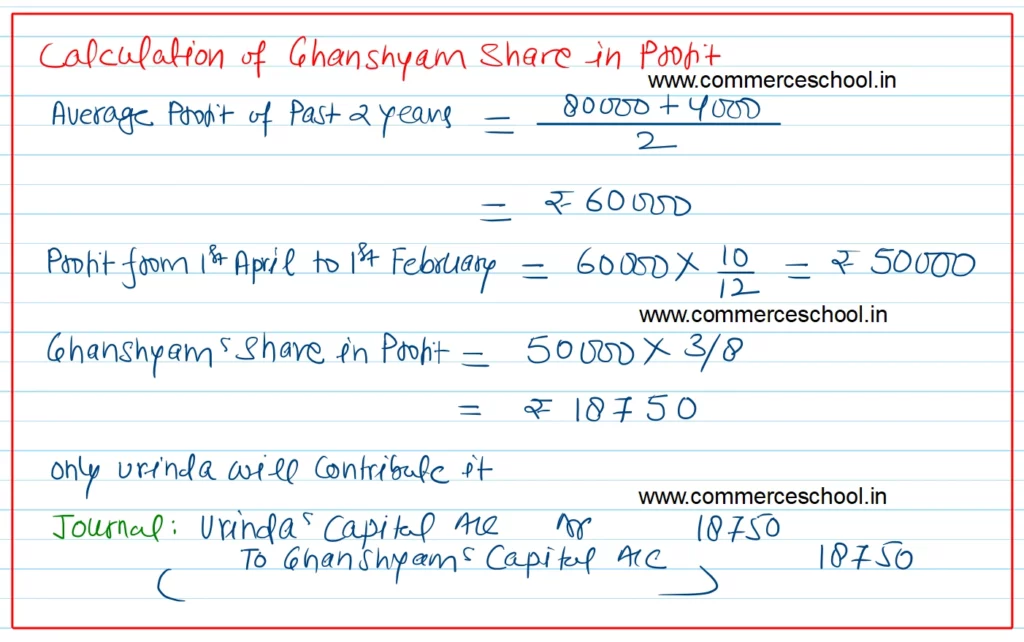 Calculation of Ghanshyam Share in Profit
www.commerceschool.in
Average Profit of Past 2 years = 80000 + 4000 / 2
= ₹ 60000
Profit from 1st April to 1st February = 60000 × 10/12 = ₹ 50000
www.commerceschool.in
Ghanshyam's Share in Profit = 50000 × 3/8
= ₹ 18750
only Urinda will Contribute it
www.commerceschool.in
Journal: Urinda's Capital A/c Dr 18750
To Ghanshyam's Capital A/C 18750
( )